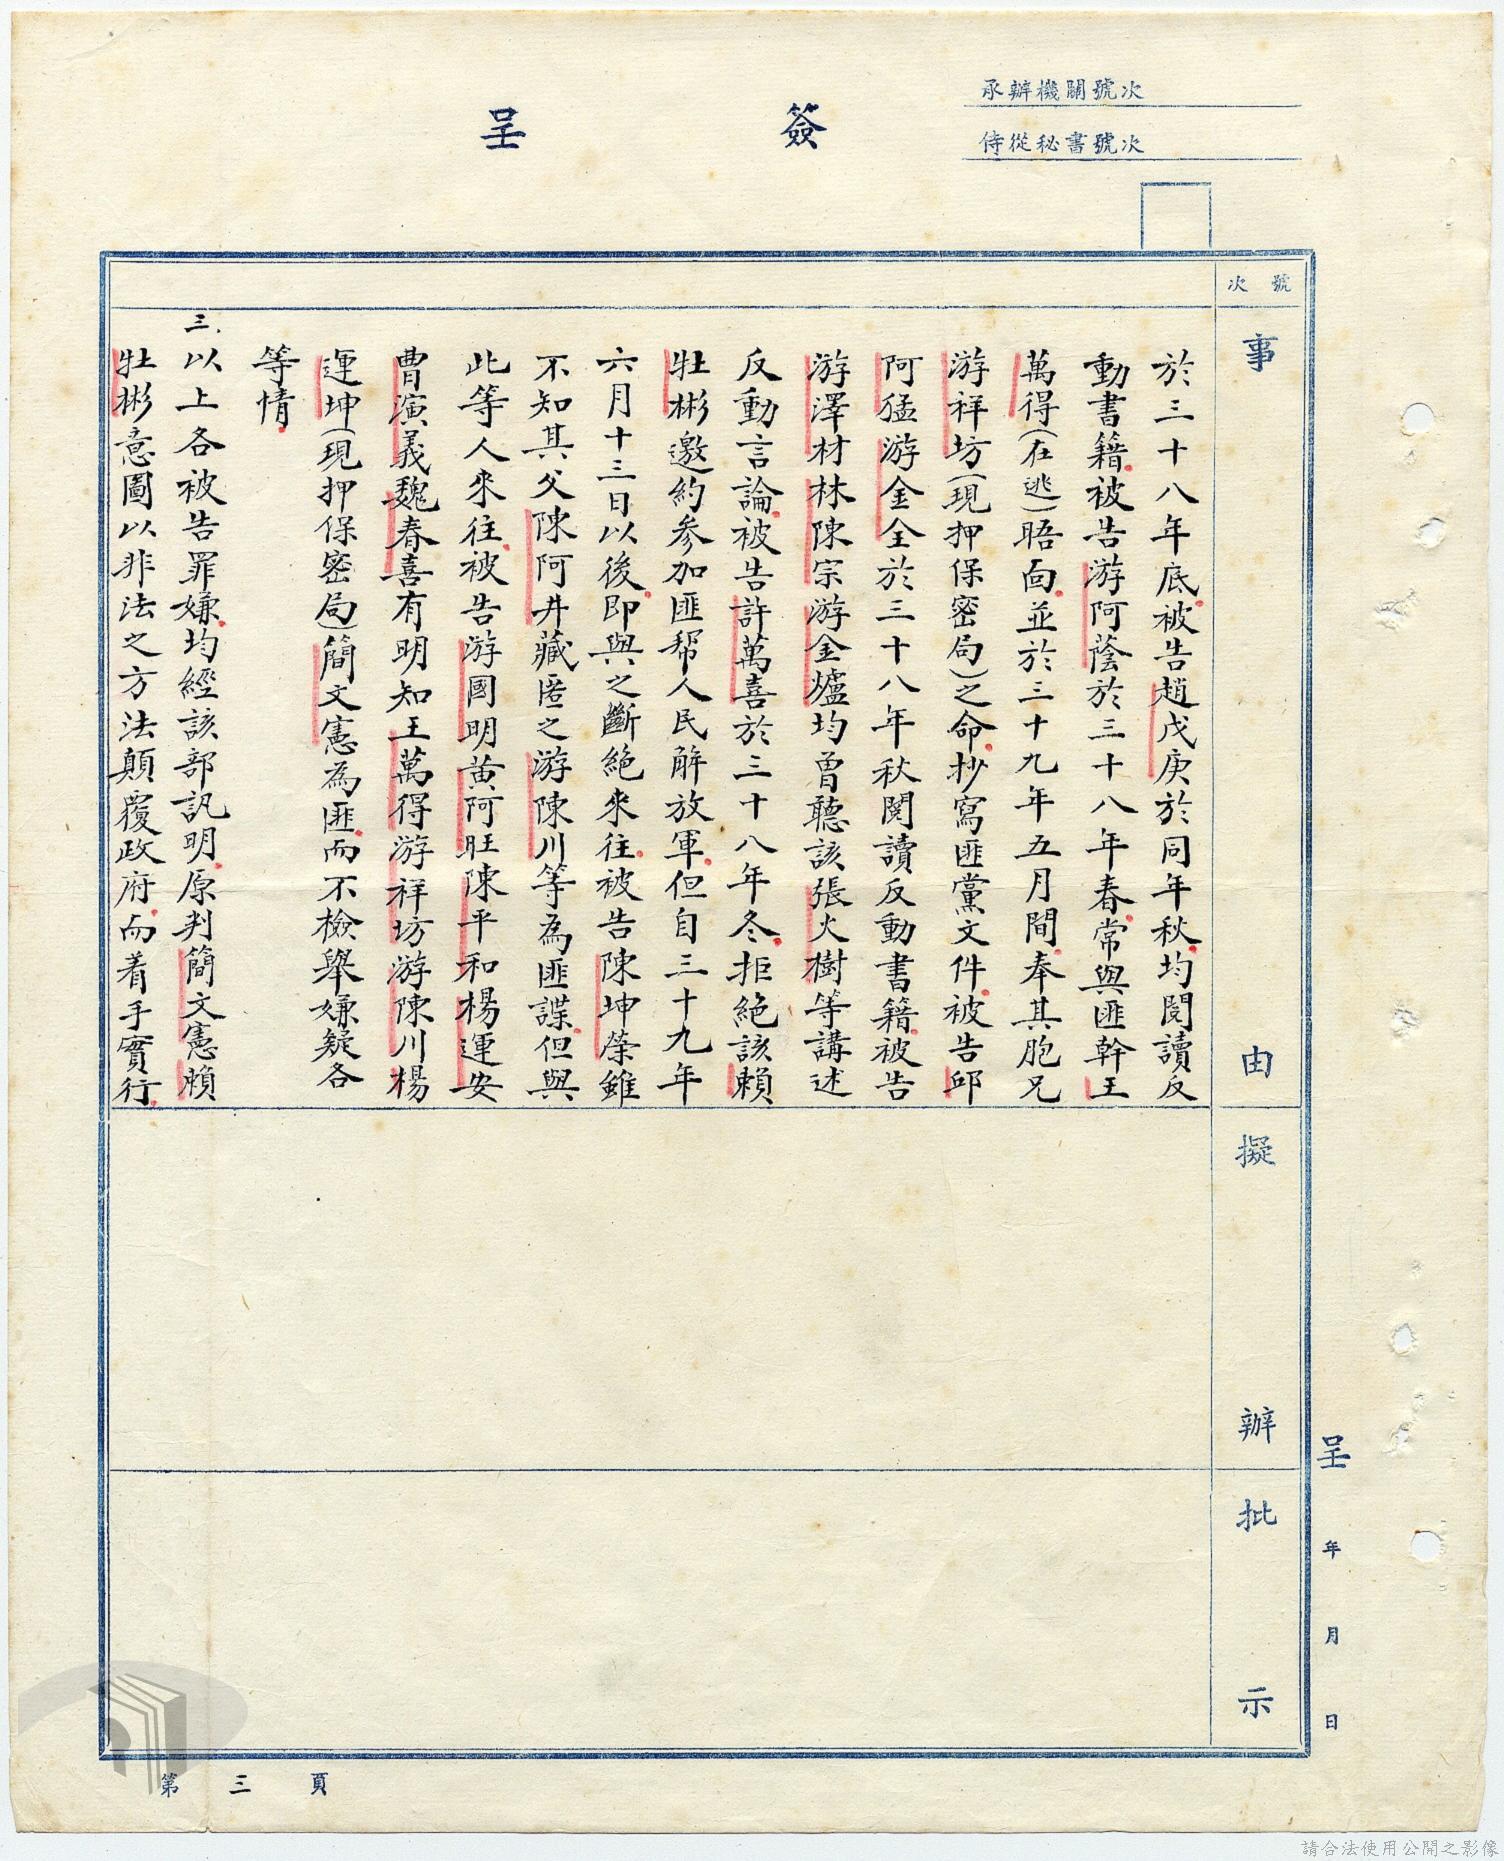 承辦機關號次
侍從秘書號次
簽呈
號次
事由
擬辦
批示
於三十八年底.被告趙戊庚於同年秋.均閱讀反
動書籍.被告游阿蔭於三十八年春.常與匪幹王
萬得(在逃)晤面.並於三十九年五月間.奉其胞兄
游祥坊(現押保密局)之命.抄寫匪黨文件.被告邱
阿猛游金全於三十八年秋閱讀反動書籍.被告
游澤材林陳宗游金爐均曾聽該張火樹等講述
反動言論.被告許萬喜於三十八年冬.拒絕該賴
牡彬邀約參加匪幫人民解放軍.但自三十九年
六月十三日以後.即與之斷絕來往.被告陳坤榮雖
不知其父陳阿井藏匿之游陳川等為匪諜.但與
此等人來往.被告游國明黃阿旺陳平和楊運安
曹演義魏春喜有明知王萬得游祥坊游陳川楊
運坤(現押保密局)簡文憲為匪.而不檢舉嫌疑各
等情.
三.以上各被告罪嫌.均經該部訊明.原判簡文憲賴
牡彬意圖以非法之方法顛覆政府.而着手實行.
呈 年 月 日
第三頁
請合法使用公開之影像